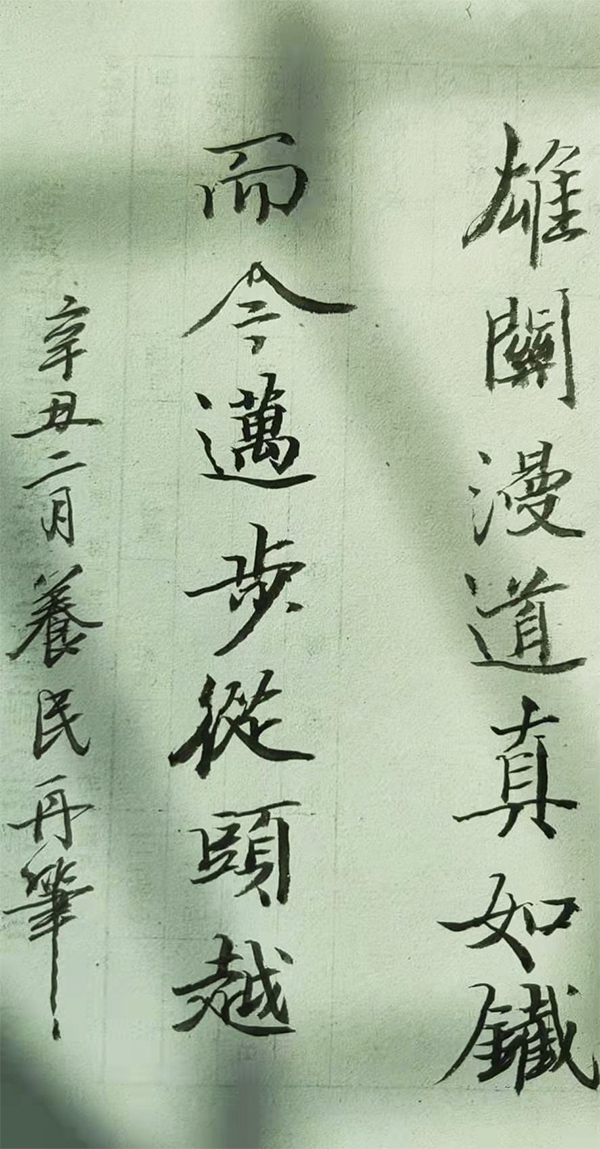 雄關漫道真如鐵
而今邁步從頭越
辛丑二月養民再筆